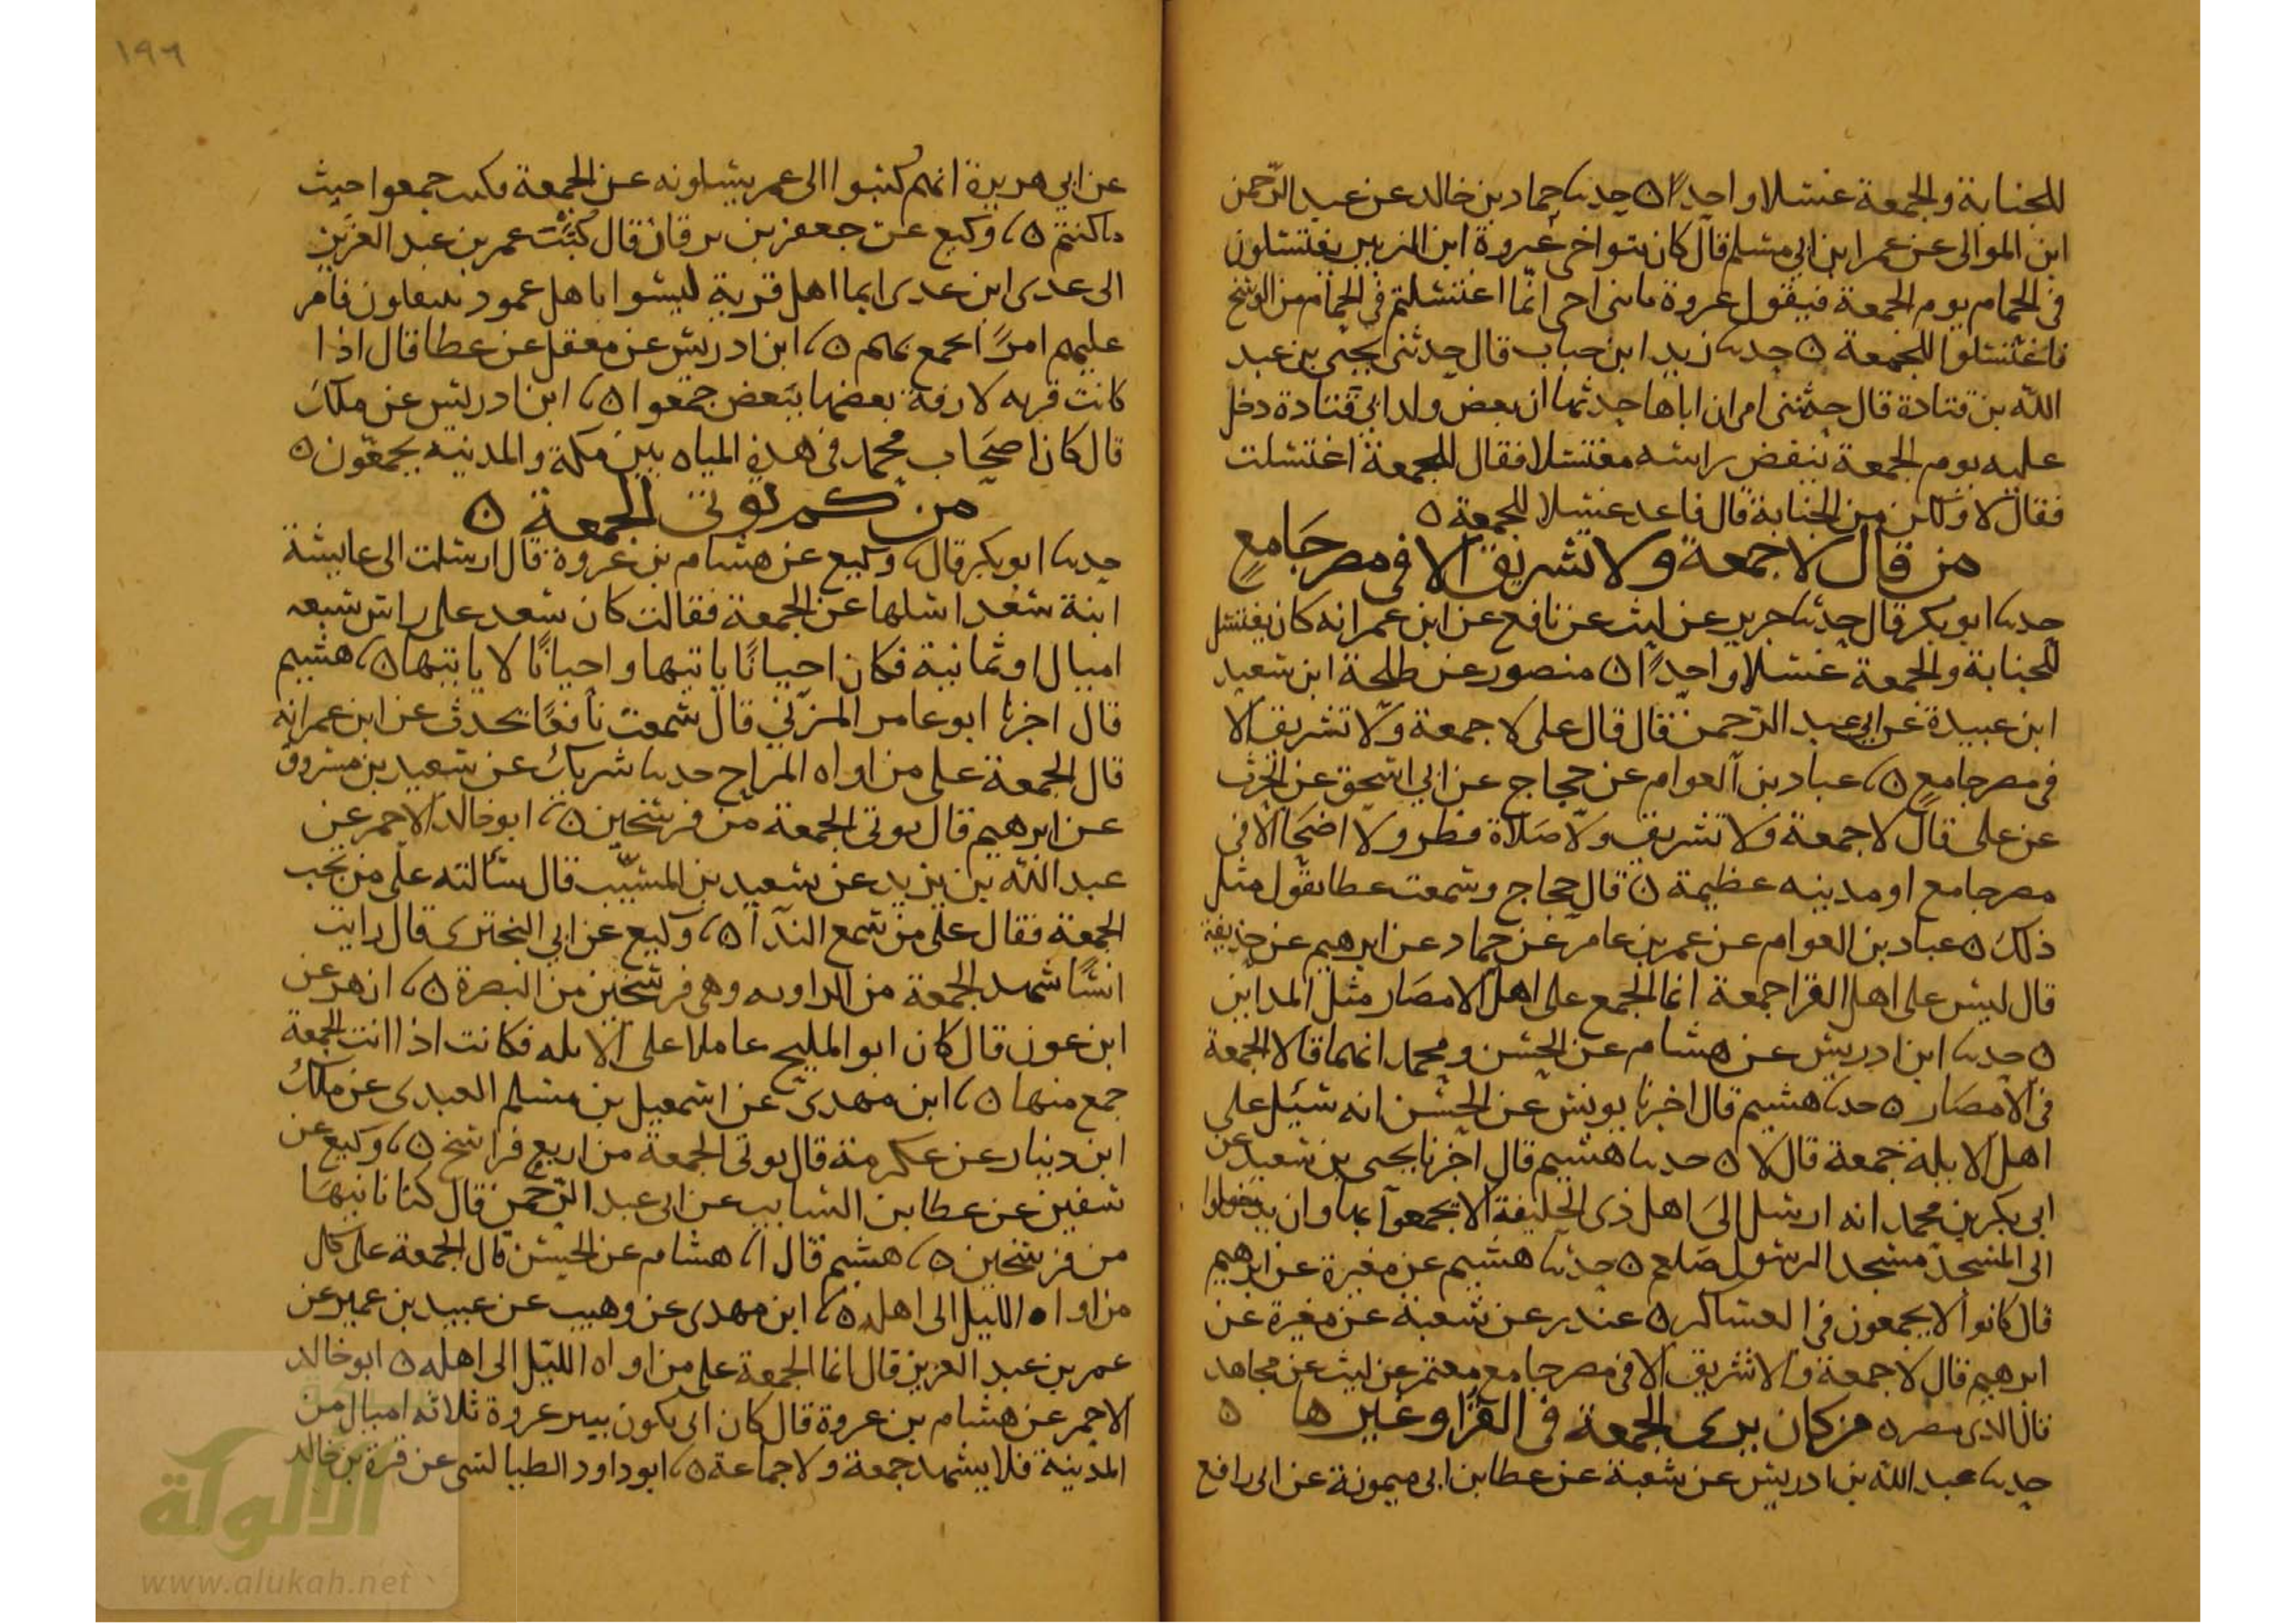 للجنابة والجمعة غسلا واحدا ه حدثنا حماد بن خالد عن عبد الرحمن
ابن الموالى عن عمر ابن ابي مسلم قال كان بنوا خى عروة ابن الزبير يغتسلون
فى الحمام يوم الجمعة فيقول عروة يابنى اخى انما اغتسلتم فى الحمام من الوسخ
فاغتسلوا للجمعة ه حدثنا زيد ابن حباب قال حدثنى يحيى بن عبد
الله بن قتادة قال حدثتنى امى ان اباها حدثها ان بعض ولد ابي قتادة دخل
عليه يوم الجمعة ينفض راسه مغتسلا فقال للجمعة اغتسلت
فقال لا ولكن من الجنابة قال فاعد غسلا للجمعة ه
من قال لا جمعة ولا تشريق الا فى مصر جامع
حدثنا ابو بكر قال حدثنا جرير عن ليث عن نافع عن ابن عمر انه كان يغتسل
للجنابة والجمعة غسلا واحدا ه منصور عن طلحة ابن سعيد
ابن عبيدة عن ابي عبد الرحمن قال قال على لا جمعة ولا تشريق الا
فى مصر جامع ه، عباد بن العوام عن حجاج عن ابي اسحق عن الحرث
عن على قال لا جمعة ولا تشريق ولا صلاة فطر ولا اضحا الا فى
مصر جامع او مدينه عظيمة ه قال حجاج وسمعت عطا يقول مثل
ذلك ه عباد بن العوام عن عمر بن عامر عن حماد عن ابرهيم عن حذيفة
قال ليس على اهل القرا جمعة انما الجمع على اهل الامصار مثل المداين
ه حدثنا ابن ادريس عن هشام عن الحسن ومحمد انهما قالا الجمعة
فى الامصار ه حدثنا هشيم قال اخرنا يونس عن الحسن انه سئل على
اهل الابلة جمعة قال لا ه حدثنا هشيم قال اخرنا يحيى بن سعيد عن
ابى بكر بن محمد انه ارسل الى اهل ذى الحليفة الا يجمعوا بها وان يدخلوا
الى المسجد مسجد الرسول صلعم ه حدثنا هشيم عن مغيرة عن ابرهيم
قال كانوا لا يجمعون فى العساكر ه غندر عن شعبة عن مغيرة عن
ابرهيم قال لا جمعة ولا تشريق الا فى مصر جامع معتمر عن ليث عن مجاهد
قال الرى مصر ه من كان يرى الجمعة فى القرا وغيرها ه
حدثنا عبد الله بن ادريس عن شعبة عن عطا بن ابى ميمونة عن ابى رافع
١٩٦
عن ابي هريرة انهم كتبوا الى عمر يسلونه عن الجمعة فكتب جمعوا حيث
ما كنتم ه، وكيع عن جعفر بن برقان قال كتب عمر بن عبد العزيز
الى عدى ابن عدى ايما اهل قرية ليسوا باهل عمود ينتقلون فامر
عليهم امرا يجمع بهم ه، ابن ادريس عن معقل عن عطا قال اذا
كانت قريه لازقة بعضها ببعض جمعوا ه، ابن ادريس عن ملك
قال كان اصحاب محمد فى هذه المياه بين مكة والمدنيه يجمعون ه
من كم توتى الجمعة ه
حدثنا ابو بكر قال، وكيع عن هشام بن عروة قال ارسلت الى عايشة
ابنة سعد اسلها عن الجمعة فقالت كان سعد على راس سبعه
اميال او ثمانية فكان احيانا ياتيها واحيانا لا ياتيها ه، هشيم
قال اخرنا ابو عامر المزني قال سمعت نافعا يحدث عن ابن عمر انه
قال الجمعة على من اواه المراح حدثنا شريك عن سعيد بن مسروق
عن ابرهيم قال يوتى الجمعة من فرسخين ه، ابو خالد الاحمر عن
عبد الله بن يزيد عن سعيد بن المسيب قال سألته على من تجب
الجمعة فقال على من سمع الندا ه، وكيع عن ابي البخترى قال رايت
انسا شهد الجمعة من الزاويه وهى فرسخين من البصرة ه، ازهر عن
ابن عون قال كان ابو المليح عاملا على الابله فكانت اذا اتت الجمعة
جمع منها ه، ابن مهدى عن اسمعيل بن مسلم العبدى عن ملك
ابن دينار عن عكرمة قال يوتى الجمعة من اربع فراسخ ه، وكيع عن
سفين عن عطا بن السايب عن ابى عبد الرحمن قال كنا ناتيها
من فرسخين ه، هشيم قال ا، هشام عن الحسن قال الجمعة على كل
من اواه الليل الى اهله ه، ابن مهدى عن وهيب عن عبيد بن عمير عن
عمر بن عبد العزيز قال انما الجمعة على من اواه الليل الى اهله ه ابو خالد
الاحمر عن هشام بن عروة قال كان ابى يكون بيير عروة ثلاثه اميال من
المدينة فلا يشهد جمعة ولا جماعة ه، ابو داود الطيالسى عن قرة بن خالد
الألوكة
www.alukah.net